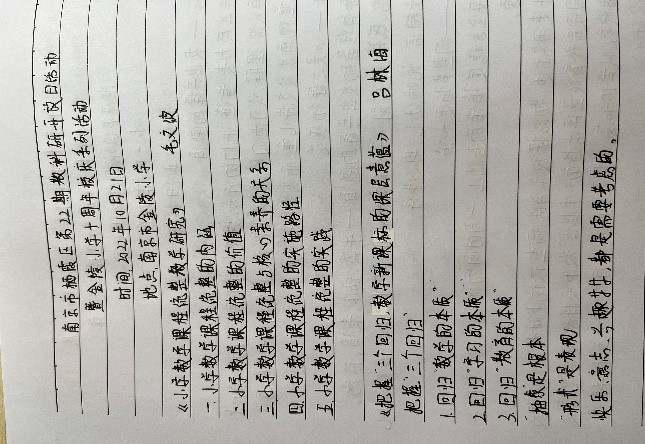 南京市栖霞区第22期教科研开放日活动
暨金陵小学十周年校庆系列活动
时间 2022年10月21日
地点 南京市金陵小学
《小学数学课程统整教学研究》 毛文波
一 小学数学课程统整的内涵
二 小学数学课程统整的价值
三 小学数学课程统整与核心素养的关系
四 小学数学课程统整的实施路径
五 小学数学课程统整的实践
《把握"三个回归"数学新课标的深层意蕴》 吕林海
把握"三个回归"
1. 回归"数学的本质"
2. 回归"学习的本质"
3. 回归"教育的本质"
"抽象"是根本
"形式"是表现
快乐、意志、兴趣 都是需要考虑的。